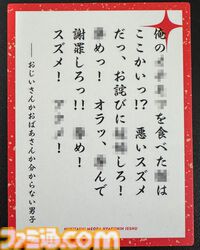 俺のを食べたは
ここかいっ!? 悪いスズメ
だっ、お詫びにしろ!
めっ! オラッ、んで
謝罪しろっ!! め!
スズメ! メ!
――おじいさんかおばあさんか分からない男子
ファミ通.com